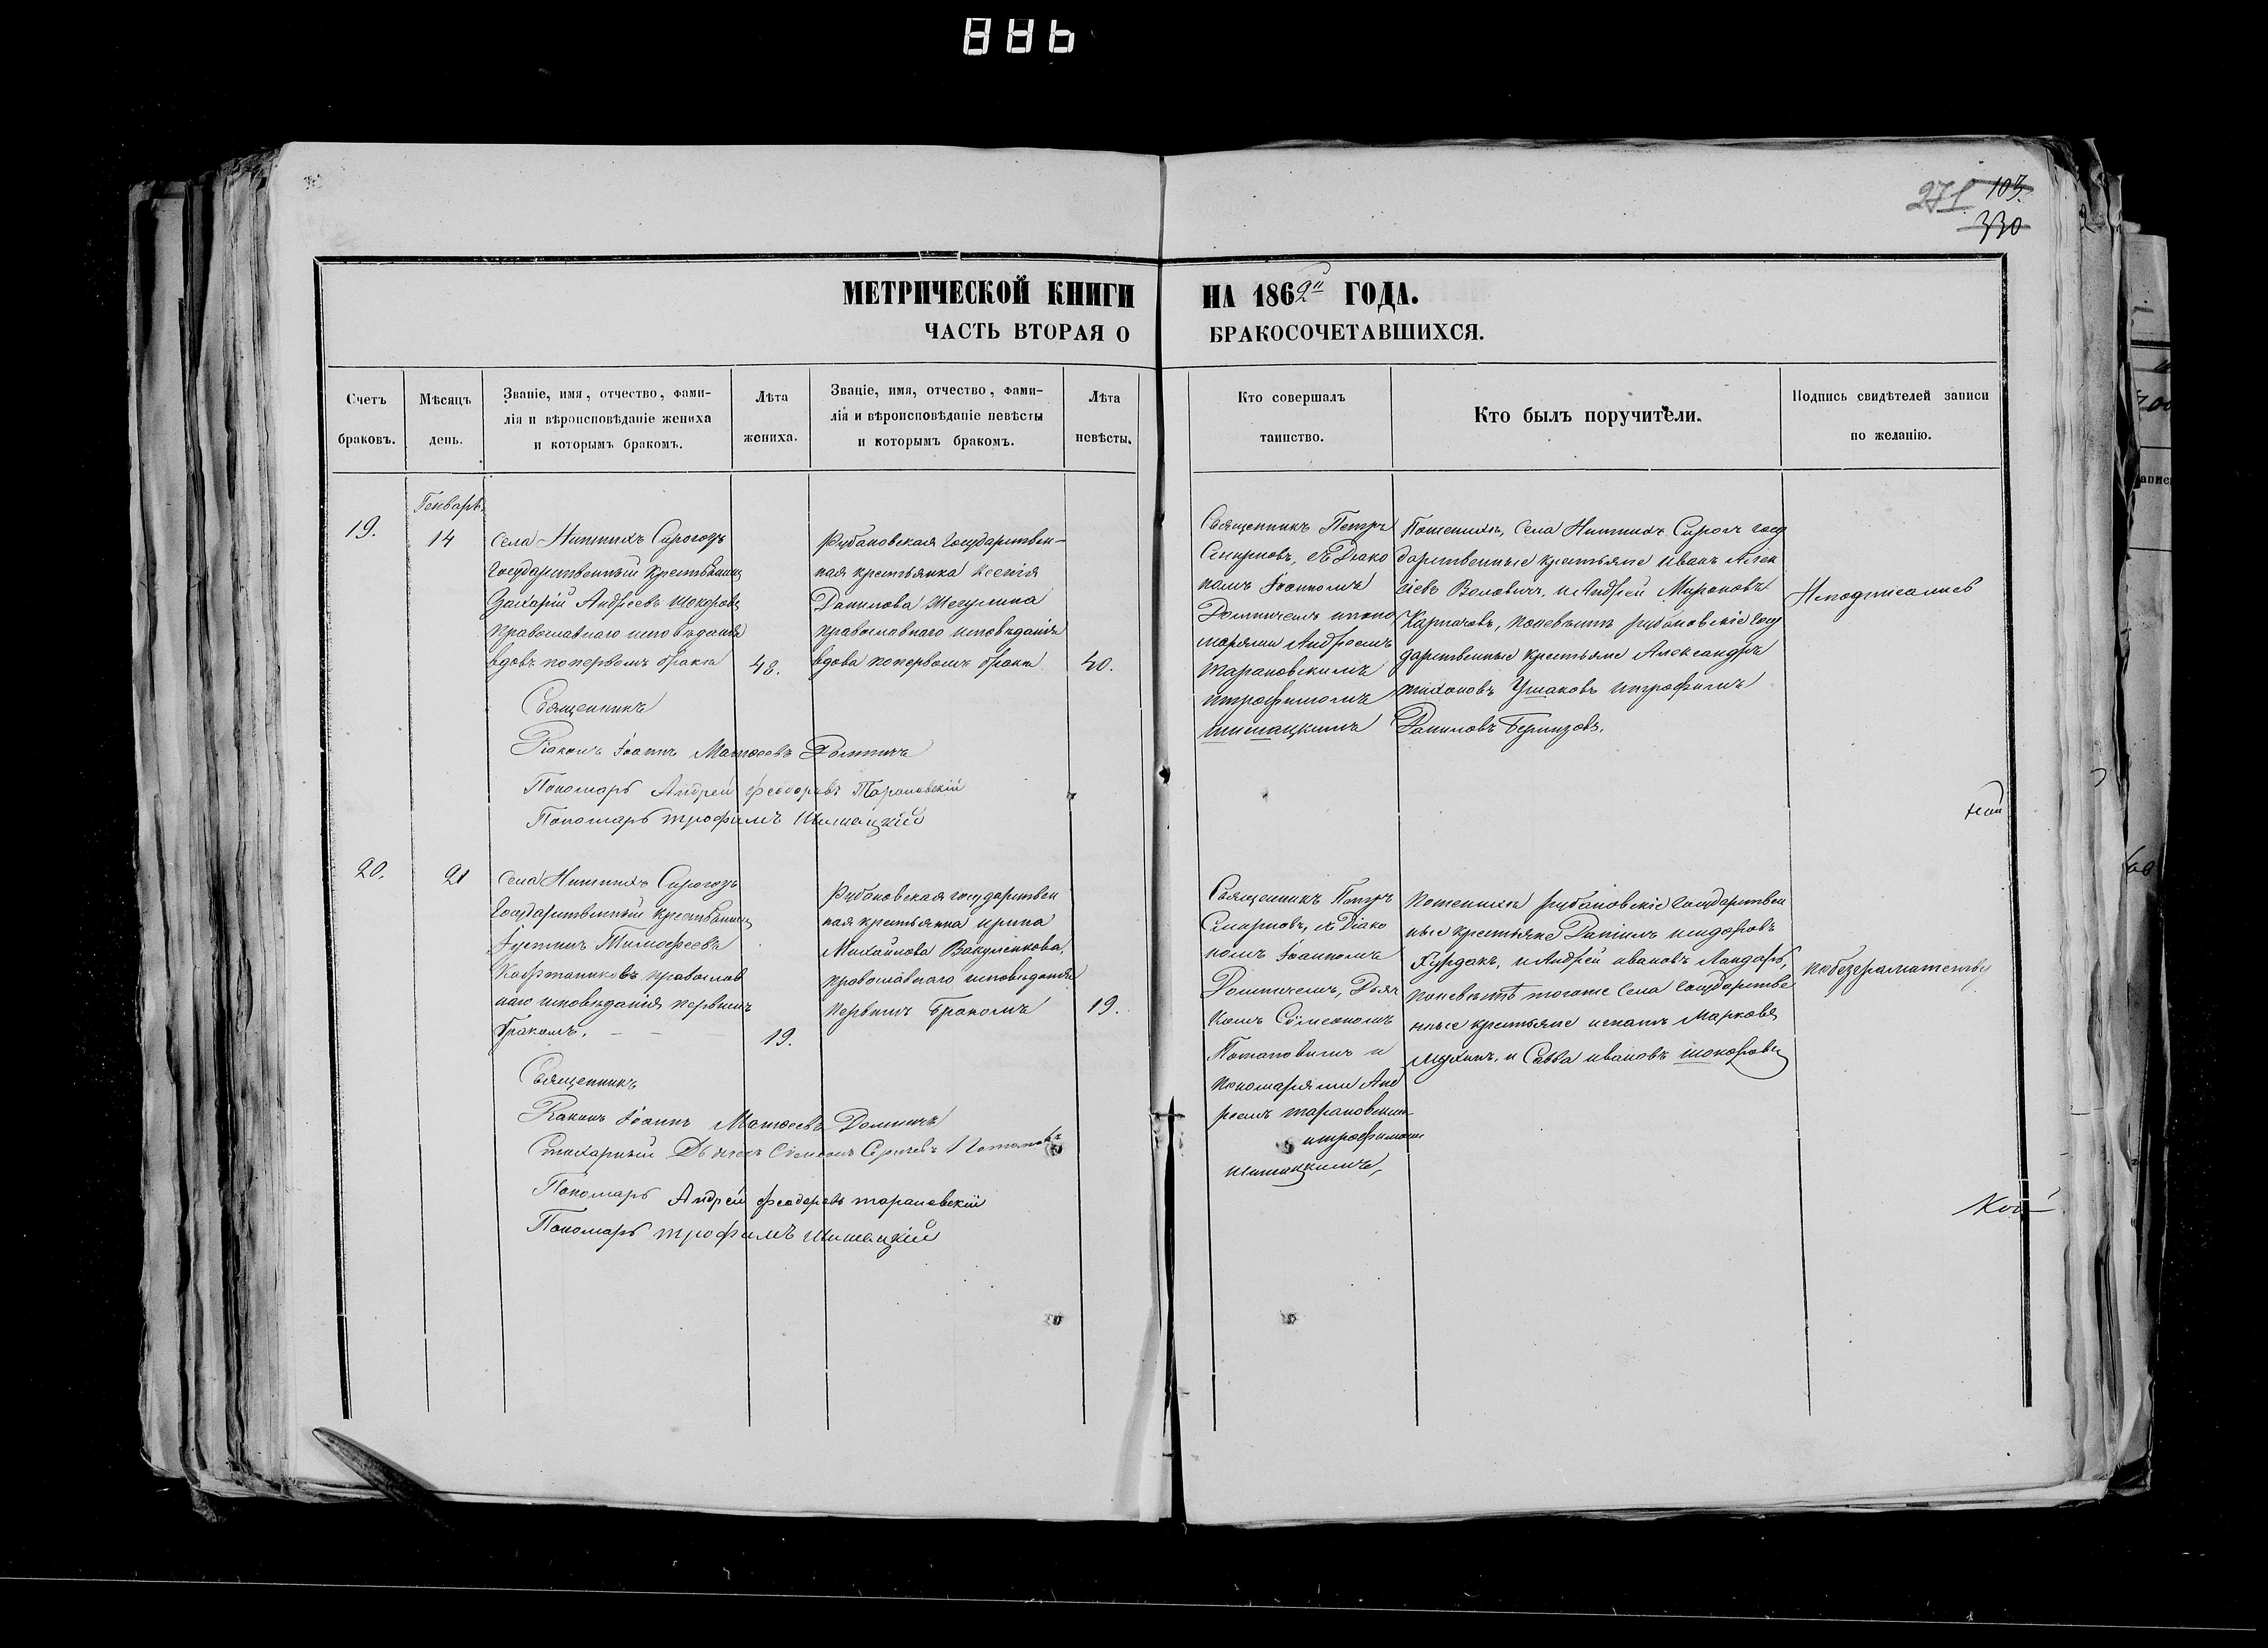 886
271 103.
330
МЕТРИЧЕСКОЙ КНИГИ НА 1862й ГОДА.
ЧАСТЬ ВТОРАЯ О БРАКОСОЧЕТАВШИХСЯ.
Счетъ браковъ.
Мѣсяцъ день.
Званіе, имя, отчество, фами-
лія и вѣроисповѣданіе жениха
и которымъ бракомъ.
Лѣта жениха.
Званіе, имя, отчество, фами-
лія и вѣроисповѣданіе невѣсты
и которымъ бракомъ.
Лѣта невѣсты.
Кто совершалъ таинство.
Кто былъ поручители.
Подпись свидѣтелей записи
по желанію.
19.
Генварь
14
Села Нитнихъ Сирогозъ
Государственный Крестьянинъ
Захарій Андреевъ Шокоровъ
православнаго исповѣданія
вдовъ по первомъ бракѣ
48.
Рубановская Государствен-
ная крестьянка Ксенія
Данилова
православнаго исповѣданія
вдова по первомъ бракѣ
40.
Священникъ Петръ
Смирновъ, съ Діако
номъ Іоанномъ
Долинчемъ и поно
марями Андреемъ
Тарановскимъ
и трофимомъ
шишацкимъ
По женихѣ, Села Нитнихъ Сирогъ Госу
дарственные крестьяне Иванъ Алек
сіевъ Воловичъ, и Андрей Мироновъ
Карпачовъ, по невѣстѣ рубановскіе Госу
дарственные крестьяне Александръ
тихоновъ Ушаковъ и трофимъ
Даниловъ
Неподписались
Священникъ
Діаконъ Іоаннъ Матѳеевъ Долинчъ
Пономарь Андрей Феодоровъ Тарановскій
Пономарь трофимъ Шишацкій
20.
21
Села Нитнихъ Сирогозъ
Государственный крестьянинъ
Іустинъ Тимофеевъ
Кафтаниковъ православ
наго исповѣданія первымъ
бракомъ.
19.
Рубановская государствен
ная крестьянка ирина
Михайлова Вакуленкова,
православнаго исповѣданія
первымъ Бракомъ
19.
Священникъ Петръ
Смирновъ, съ Діако
номъ Іоанномъ
Долинчемъ, Дьяч
комъ Сѵмеономъ
Потаповымъ и
пономарями Анд
реемъ тарановским
и трофимомъ
шишацкимъ,
По женихѣ рубановскіе Государствен
ные крестьяне Даніилъ исидоровъ
Курдакъ, и Андрей ивановъ Ландаръ,
по невѣстѣ тогоже Села Государстве
нные крестьяне игнатъ Марковъ
мухинъ, и Савва ивановъ шокоровъ
по безграмотству
Священникъ
Діаконъ Іоаннъ Матѳеевъ Долинчъ
Стихарный Дьячекъ Сѵмеонъ Сергѣевъ Потаповъ
Пономарь Андрей феодоровъ тарановскій
Пономарь трофимъ шишацкій